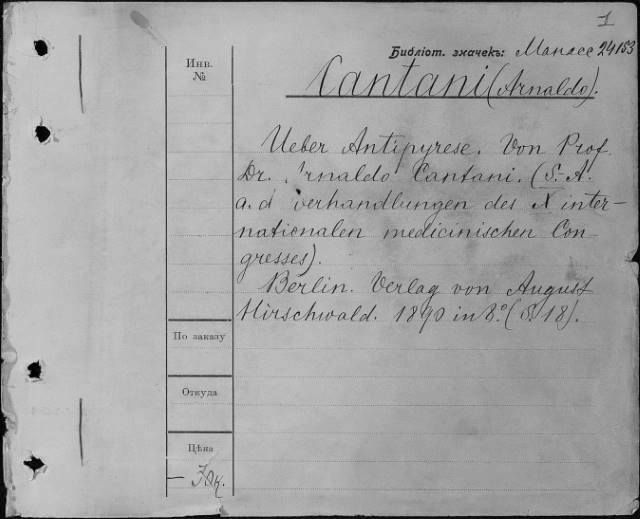 1
Библіот. значекъ: Манасс 24153
Инв.
№
Cantani (Arnaldo).
Ueber Antipyrese. Von Prof.
Dr. Arnaldo Cantani. (S. A.
a. d verhandlungen des X inter-
nationalen medicinischen Con
gresses).
Berlin. Verlag von August
Hirschwald. 1890 in 8.º (S. 18).
По заказу
Откуда
Цѣна